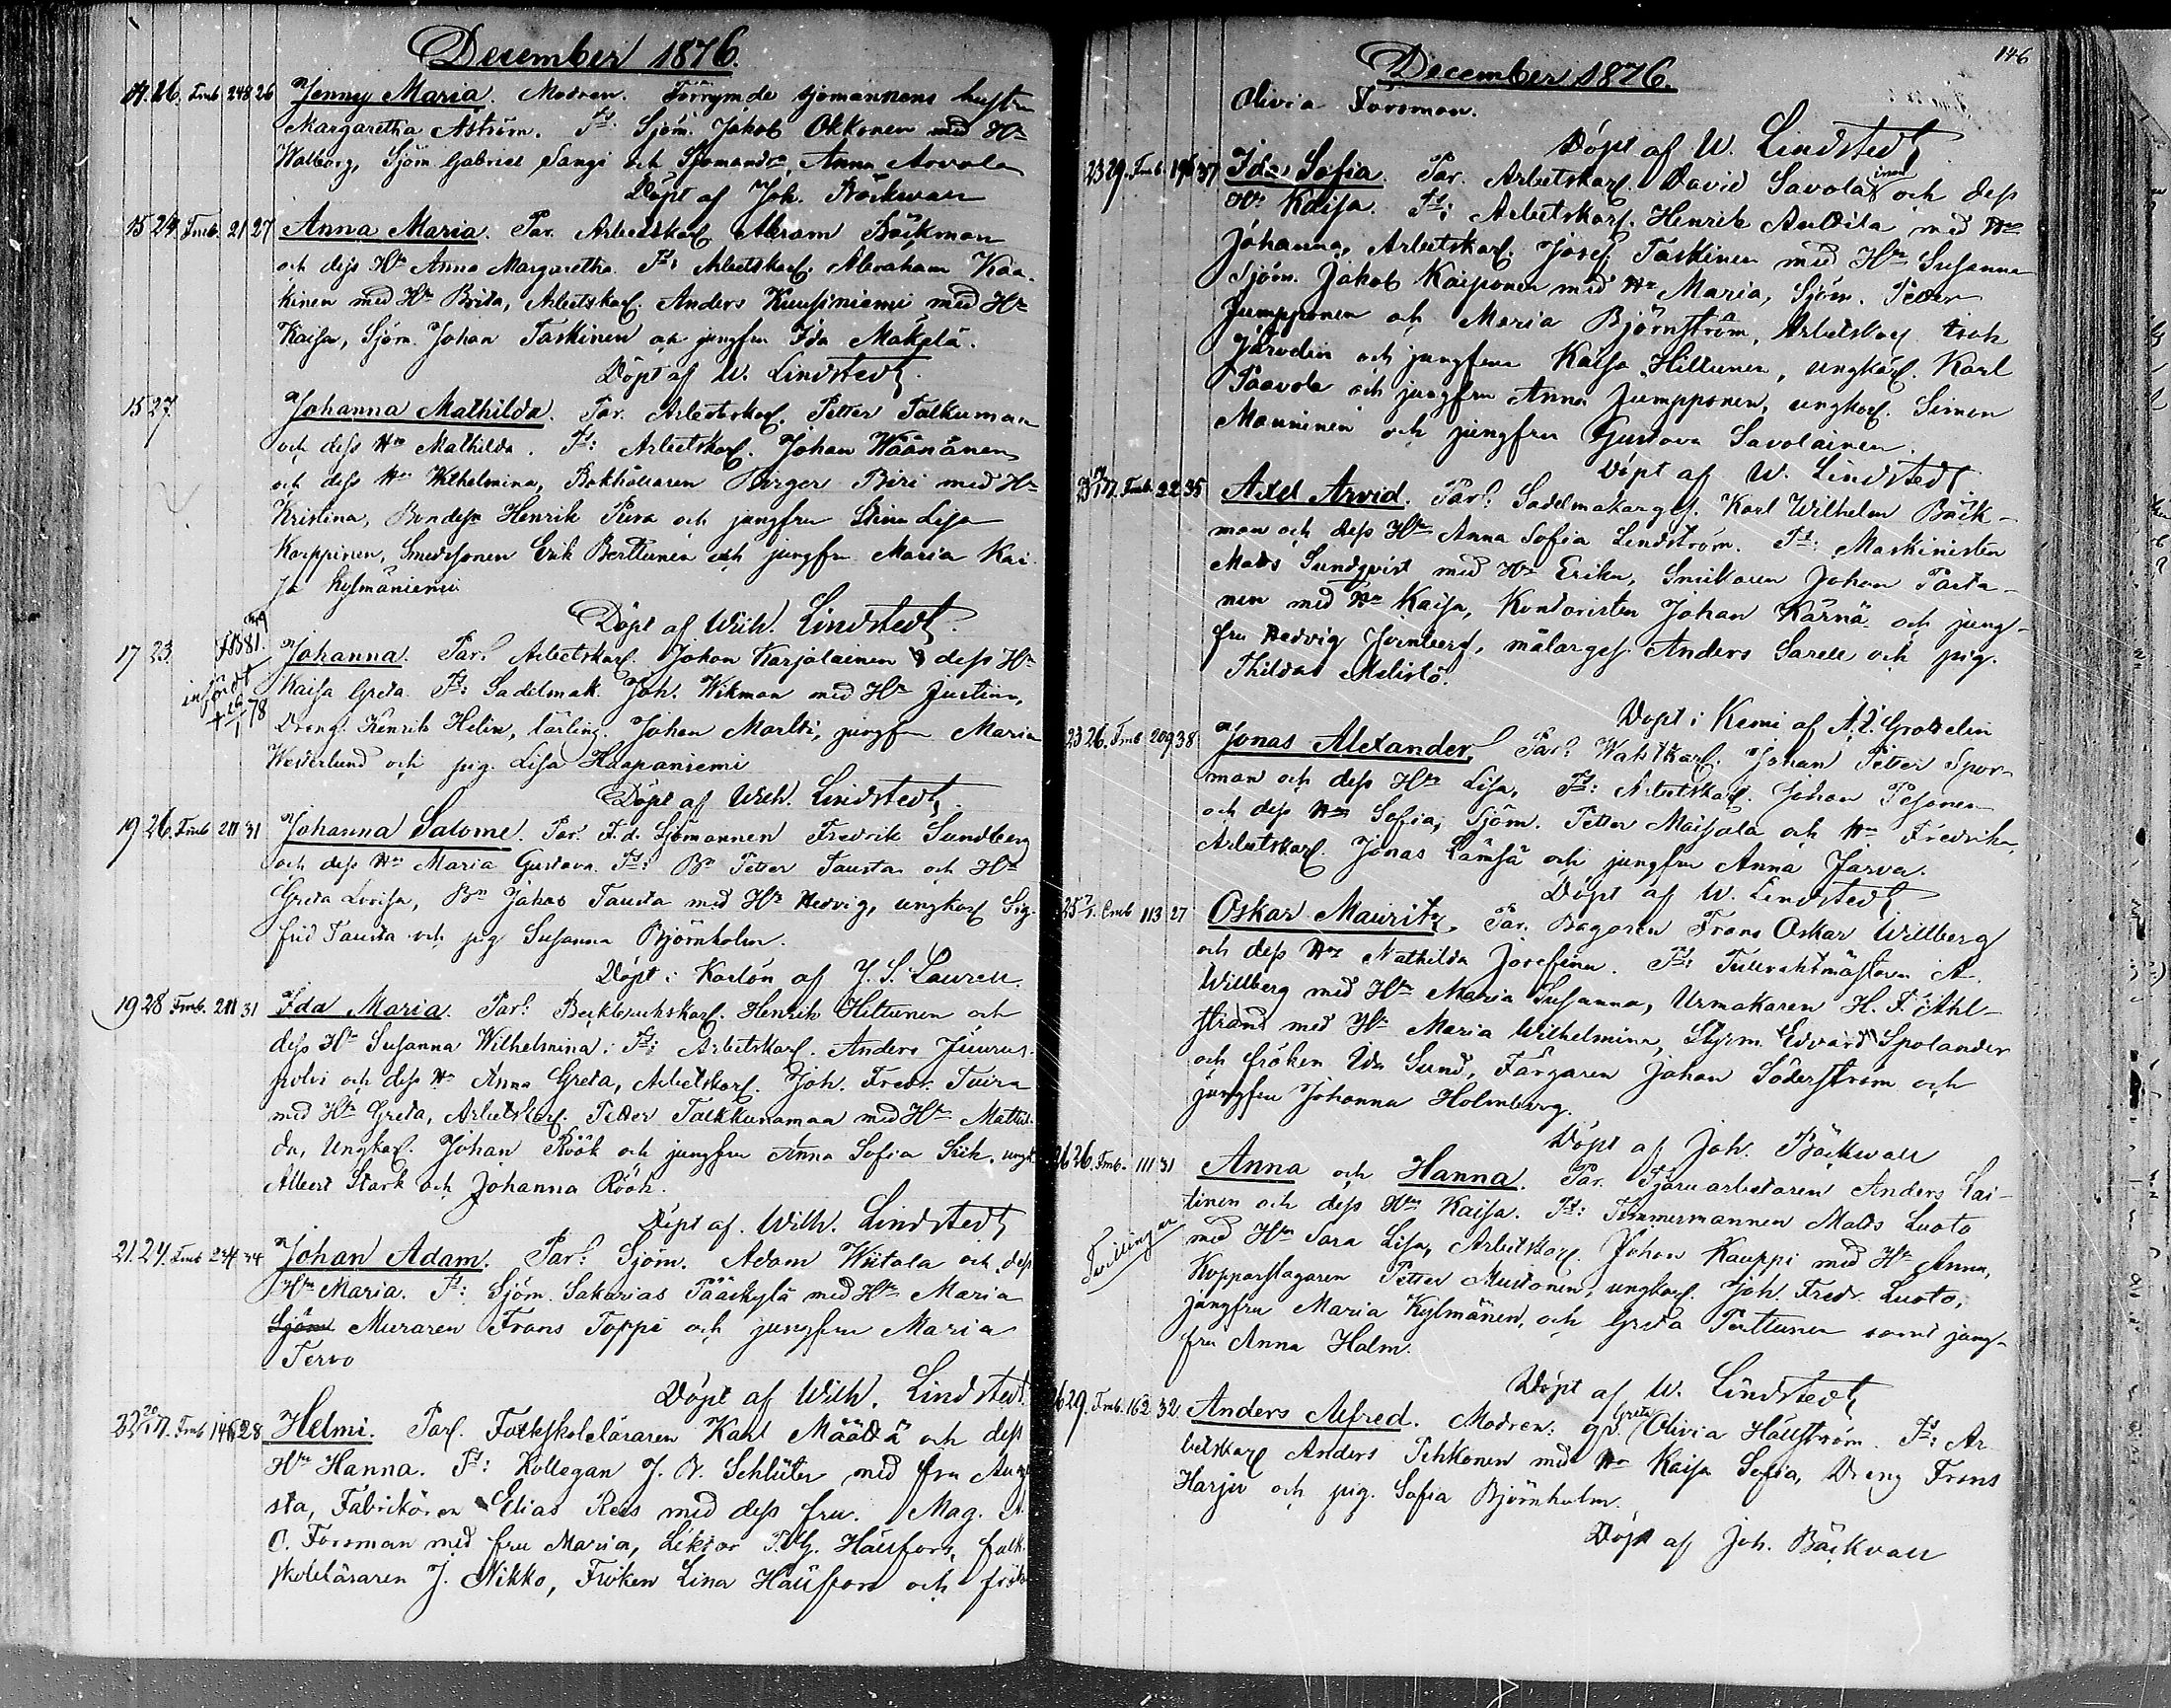 December 1876.
14. 26. Fmb 248 26 Jenny Maria. Modren. Förrymde sjömannens hustru
Margaretha Åström. Fd: Sjöm. Jakob Okkonen med Hu
Walborg, Sjöm Gabriel Sangi och Anna Arvola
Döpt af Joh. Bäckvall
15 24 Fmb. 21 27 Anna Maria. Par. Arbetskarl Abram Bäckman
och dess Hu Anna Margaretha. Fd: Arbetskarl. Abraham Kaa-
kinen med Hu Brita, Arbetskarl. Anders Kuusiniemi med Hu
Kaisa, Sjöm. Johan Taskinen och jungfru Ida Mäkelä.
Döpt af W. Lindstedt.
15 27. Johanna Mathilda. Par. Arbetskarl. Petter Talkuman
och dess Hu Mathilda. Fd: Arbetskarl. Johan Wäänänen
och dess Hu Wilhelmina, Bokhållaren Birger Biri med Hu
Kristina, Bondes Henrik och jungfru Stina Lisa
Karppinen, Smedssonen Erik Berttunen och jungfru Maria Kai-
sa Kylmäniemi
Döpt af Wilh. Lindstedt.
17 23. 1881. Johanna. Par: Arbetskarl. Johan Karjalainen & dess Hu
införd Kaisa Greta. Fd: Sadelmak. Joh. Wikman med Hu Justina,
78 Dreng. Henrik Helin, lärling. Johan Martti, jungfru Maria
Westerlund och pig. Lisa Haapaniemi
Döpt af Wilh. Lindstedt.
19 26. Fmb 211 31 Johanna Salome. Par. F.d. Sjömannen Fredrik Sundberg
och dess Hu Maria Gustava. Fd: Bn Petter Fausta och Hu
Greta Lovisa, Bn Jakob Fausta med Hu Hedvig, ungkarl Sig-
frid Fausta och pig Susanna Björnholm.
Döpt i Karlön af J. S. Laurell.
19 28 Fmb. 211 31 Ida Maria. Par: Beckbrukskarl. Henrik Hiltunen och
dess Hu Susanna Wilhelmina. Fd: Arbetskarl. Anders Juurus-
polvi och dess Hu Anna Greta, Arbetskarl. Joh. Fredr. Tuira
med Hu Greta, Arbetskarl. Petter Talkkunamaa med Hu Mathil-
da, Ungkarl. Johan Röök och jungfru Anna Sofia Siik, ungk
Albert Stark och Johanna Röök.
Döpt af. Wilh. Lindstedt
21. 24. Fmb 234 34 Johan Adam. Par: Sjöm. Adam Wiitala och dess
Hu Maria. Fd: Sjöm. Sakarias Pääskylä med Hu Maria
Sjöm Muraren Frans Toppi och jungfru Maria
Tervo
Döpt af Wilh. Lindstedt.
22 20/1 77. Fmb 146 28 Helmi. Par. Folkskoleläraren Karl Määttä och dess
Hu Hanna. Fd: Kollegan J. B. Schlüter med fru Augu-
sta, Fabrikören Elias Rees med dess fru. Mag. A.
O. Forsman med fru Maria, Lektor Hällfors, folk-
skoleläraren J. Nikko, Fröken Lina Hällfors och frök
146
December 1876.
Olivia Forsman.
Döpt af W. Lindstedt
23 29. Fmb. 196 37 Ida Sofia. Par. Arbetskarl. David Savolainen och dess
Hu Kaisa. Fd: Arbetskarl. Henrik Anttila med Hu
Johanna, Arbetskarl. Josef Taskinen med Hu Susanna
Sjöm. Jakob Kaiponen med Hu Maria, Sjöm. Petter
Jumpponen och Maria Björnström, Arbetskarl Isak
Järvelin och jungfrun Kaisa Hiltunen, ungkarl. Karl
Paavola och jungfru Anna Jumpponen, ungkarl. Simon
Manninen och jungfru Gustava Savolainen.
Döpt af W. Lindstedt
Fmb. 22 35 Axel Arvid. Par: Sadelmakarges. Karl Wilhelm Bäck-
man och dess Hu Anna Sofia Lindström. Fd: Maskinisten
Mats Sundqvist med Hu Erika, Snickaren Johan Parta-
nen med Hu Kaisa, Kontoristen Johan Kärnä och jung-
fru Hedvig Jernberg, målarges Anders Sarell och pig.
Thilda
Döpt i Kemi af
23 26. Fmb 209 38 Jonas Alexander. Par: Waktkarl. Johan Petter Spor-
man och dess Hu Lisa, Fd: Arbetskarl. Johan Pesonen
och dess Hu Sofia, Sjöm. Petter Maisala och Hu Fredrika,
Arbetskarl. Jonas Lämsä och jungfru Anna Jarva.
Döpt af W. Lindstedt
25 7/1. Cmb 113 27 Oskar Mauritz. Par. Bagaren Frans Oskar Willberg
och dess Hu Mathilda Josefina. Fd: Tullvaktmästaren A.
Willberg med Hu Maria Susanna, Urmakaren H. F. Ahl-
strand med Hu Maria Wilhelmina, Styrm. Edvard Spolander
och fröken Ida Sund, Färgaren Johan Söderström och
jungfru Johanna Holmberg.
Döpt af Joh. Bäckvall
26 26. Fmb. 111 31 Anna och Hanna. Par. Tjäruarbetaren Anders Lai-
tinen och dess Hu Kaisa. Fd: Timmermannen Mats Luoto
Tvillingar med Hu Sara Lisa, Arbetskarl. Johan Kauppi med Hu Anna,
Kopparslagaren Petter Mustonen, ungkarl. Joh. Fredr. Luoto,
jungfru Maria Kylmänen, och Greta Perttunen samt jung-
fru Anna Holm.
Döpt af W. Lindstedt
26 29. Fmb. 162 32 Anders Alfred. Modren: Greta Olivia Hällström. Fd: Ar-
betskarl Anders Pehkonen med Hu Kaisa Sofia, Dreng Frans
Harju och pig. Sofia Björnholm.
Döpt af Joh. Bäckvall